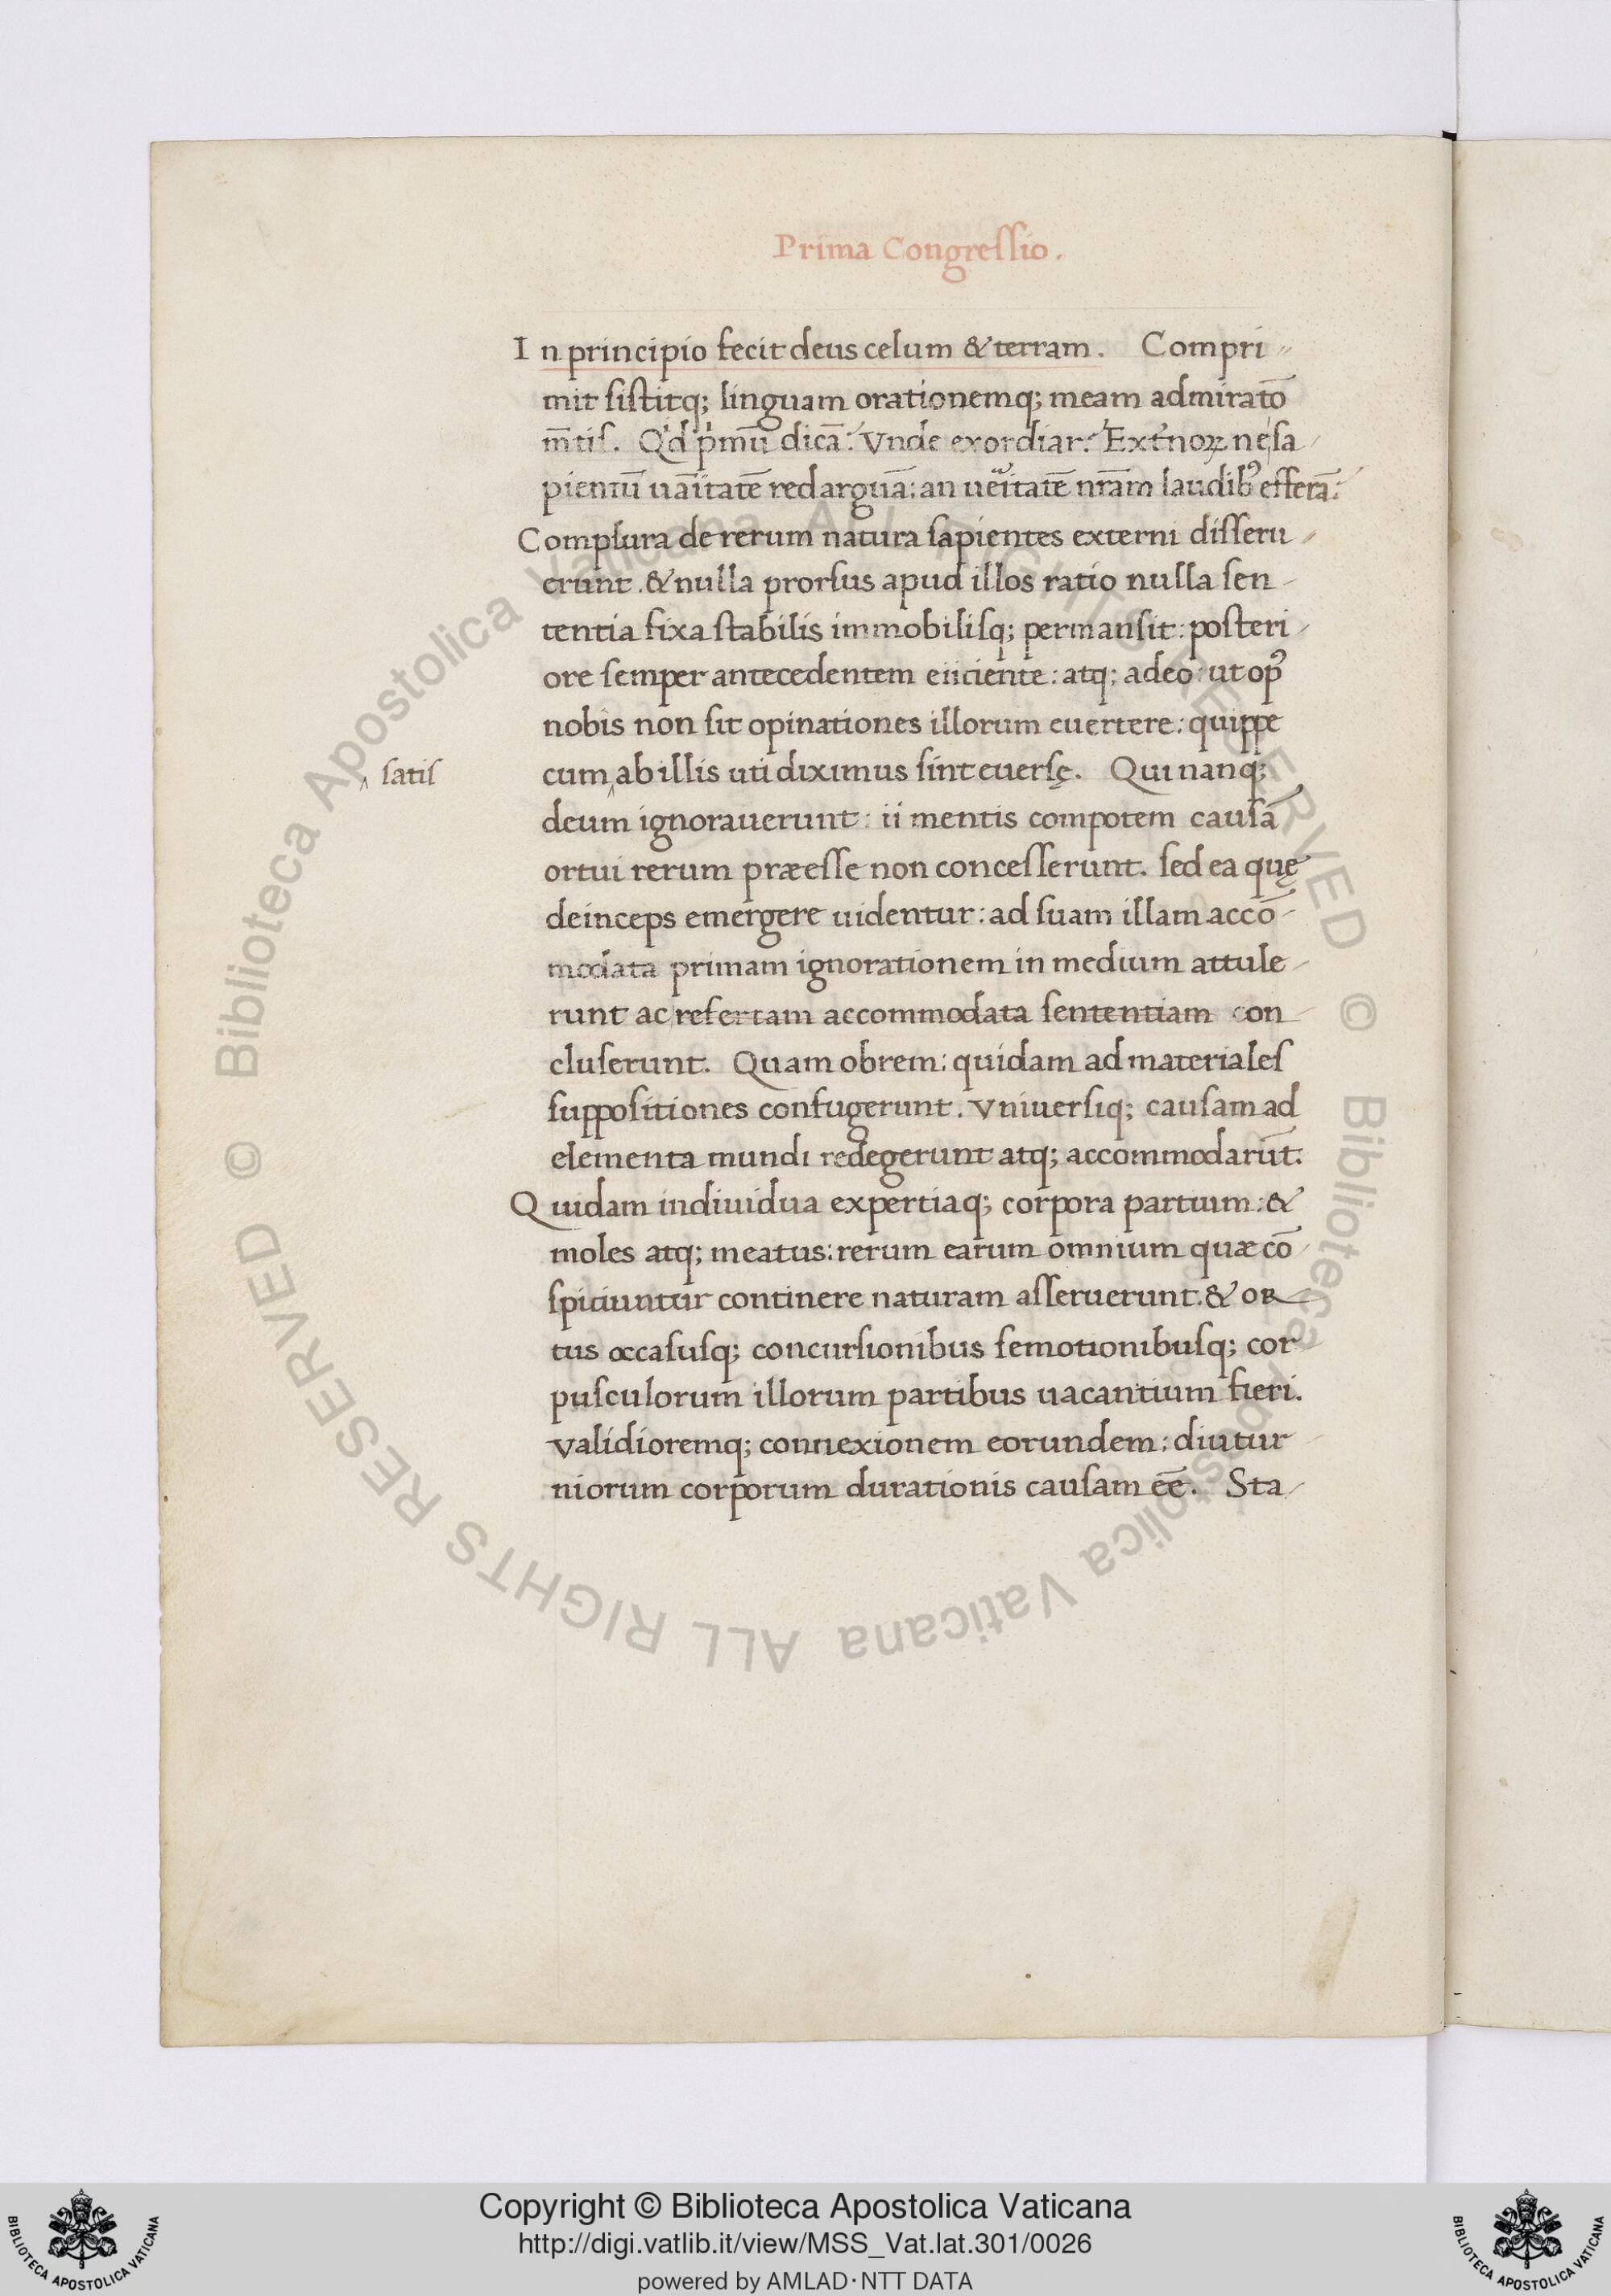 Prima Congreſſio.
In principio fecit deus celum & terram. Compri
mit ſiſtitq; linguam orationemq; meam admirato͞
m͞tiſ. Qͥd pͥmū dicā: Vnde exordiar: Extͥnoꝝ ne ſa
pientū uāitatē redarguā: an ueͥitatē nr̄am laudibꝰ efferā:
Complura de rerum natura ſapientes externi diſſeru
erunt. & nulla prorſus apud illos ratio nulla ſen
tentia fixa ſtabilis immobiliſq; permanſit: poſteri
ore ſemper antecedentem eiiciente: atq; adeo: ut opꝰ
nobis non ſit opinationes illorum euertere: quippe
‸ ſatiſ
cum‸ab illis uti diximus ſint euerſę. Qui nanq;
deum ignorauerunt: ii mentis compotem cauſā
ortui rerum præeſſe non conceſſerunt. ſed ea quę
deinceps emergere uidentur: ad ſuam illam accō
modata primam ignorationem in medium attule
runt ac refertam accommodata ſententiam con
cluſerunt. Quam obrem: quidam ad materialeſ
ſuppoſitiones confugerunt. Vniuerſiq; cauſam ad
elementa mundi redegerunt atq; accommodarūt.
Quidam indiuidua expertiaq; corpora partium: &
moles atq; meatus: rerum earum omnium quæ cō
ſpiciuntur continere naturam aſſeruerunt. & or
tus occaſuſq; concurſionibus ſemotionibuſq; cor
puſculorum illorum partibus uacantium fieri.
validioremq; connexionem eorundem: diutur
niorum corporum durationis cauſam eē. Sta
© Biblioteca Apostolica Vaticana ALL RIGHTS RESERVED © Biblioteca Apostolica Vaticana ALL RIGHTS RESERVED
Copyright © Biblioteca Apostolica Vaticana
http://digi.vatlib.it/view/MSS_Vat.lat.301/0026
powered by AMLAD·NTT DATA
BIBLIOTECA APOSTOLICA VATICANA
BIBLIOTECA APOSTOLICA VATICANA